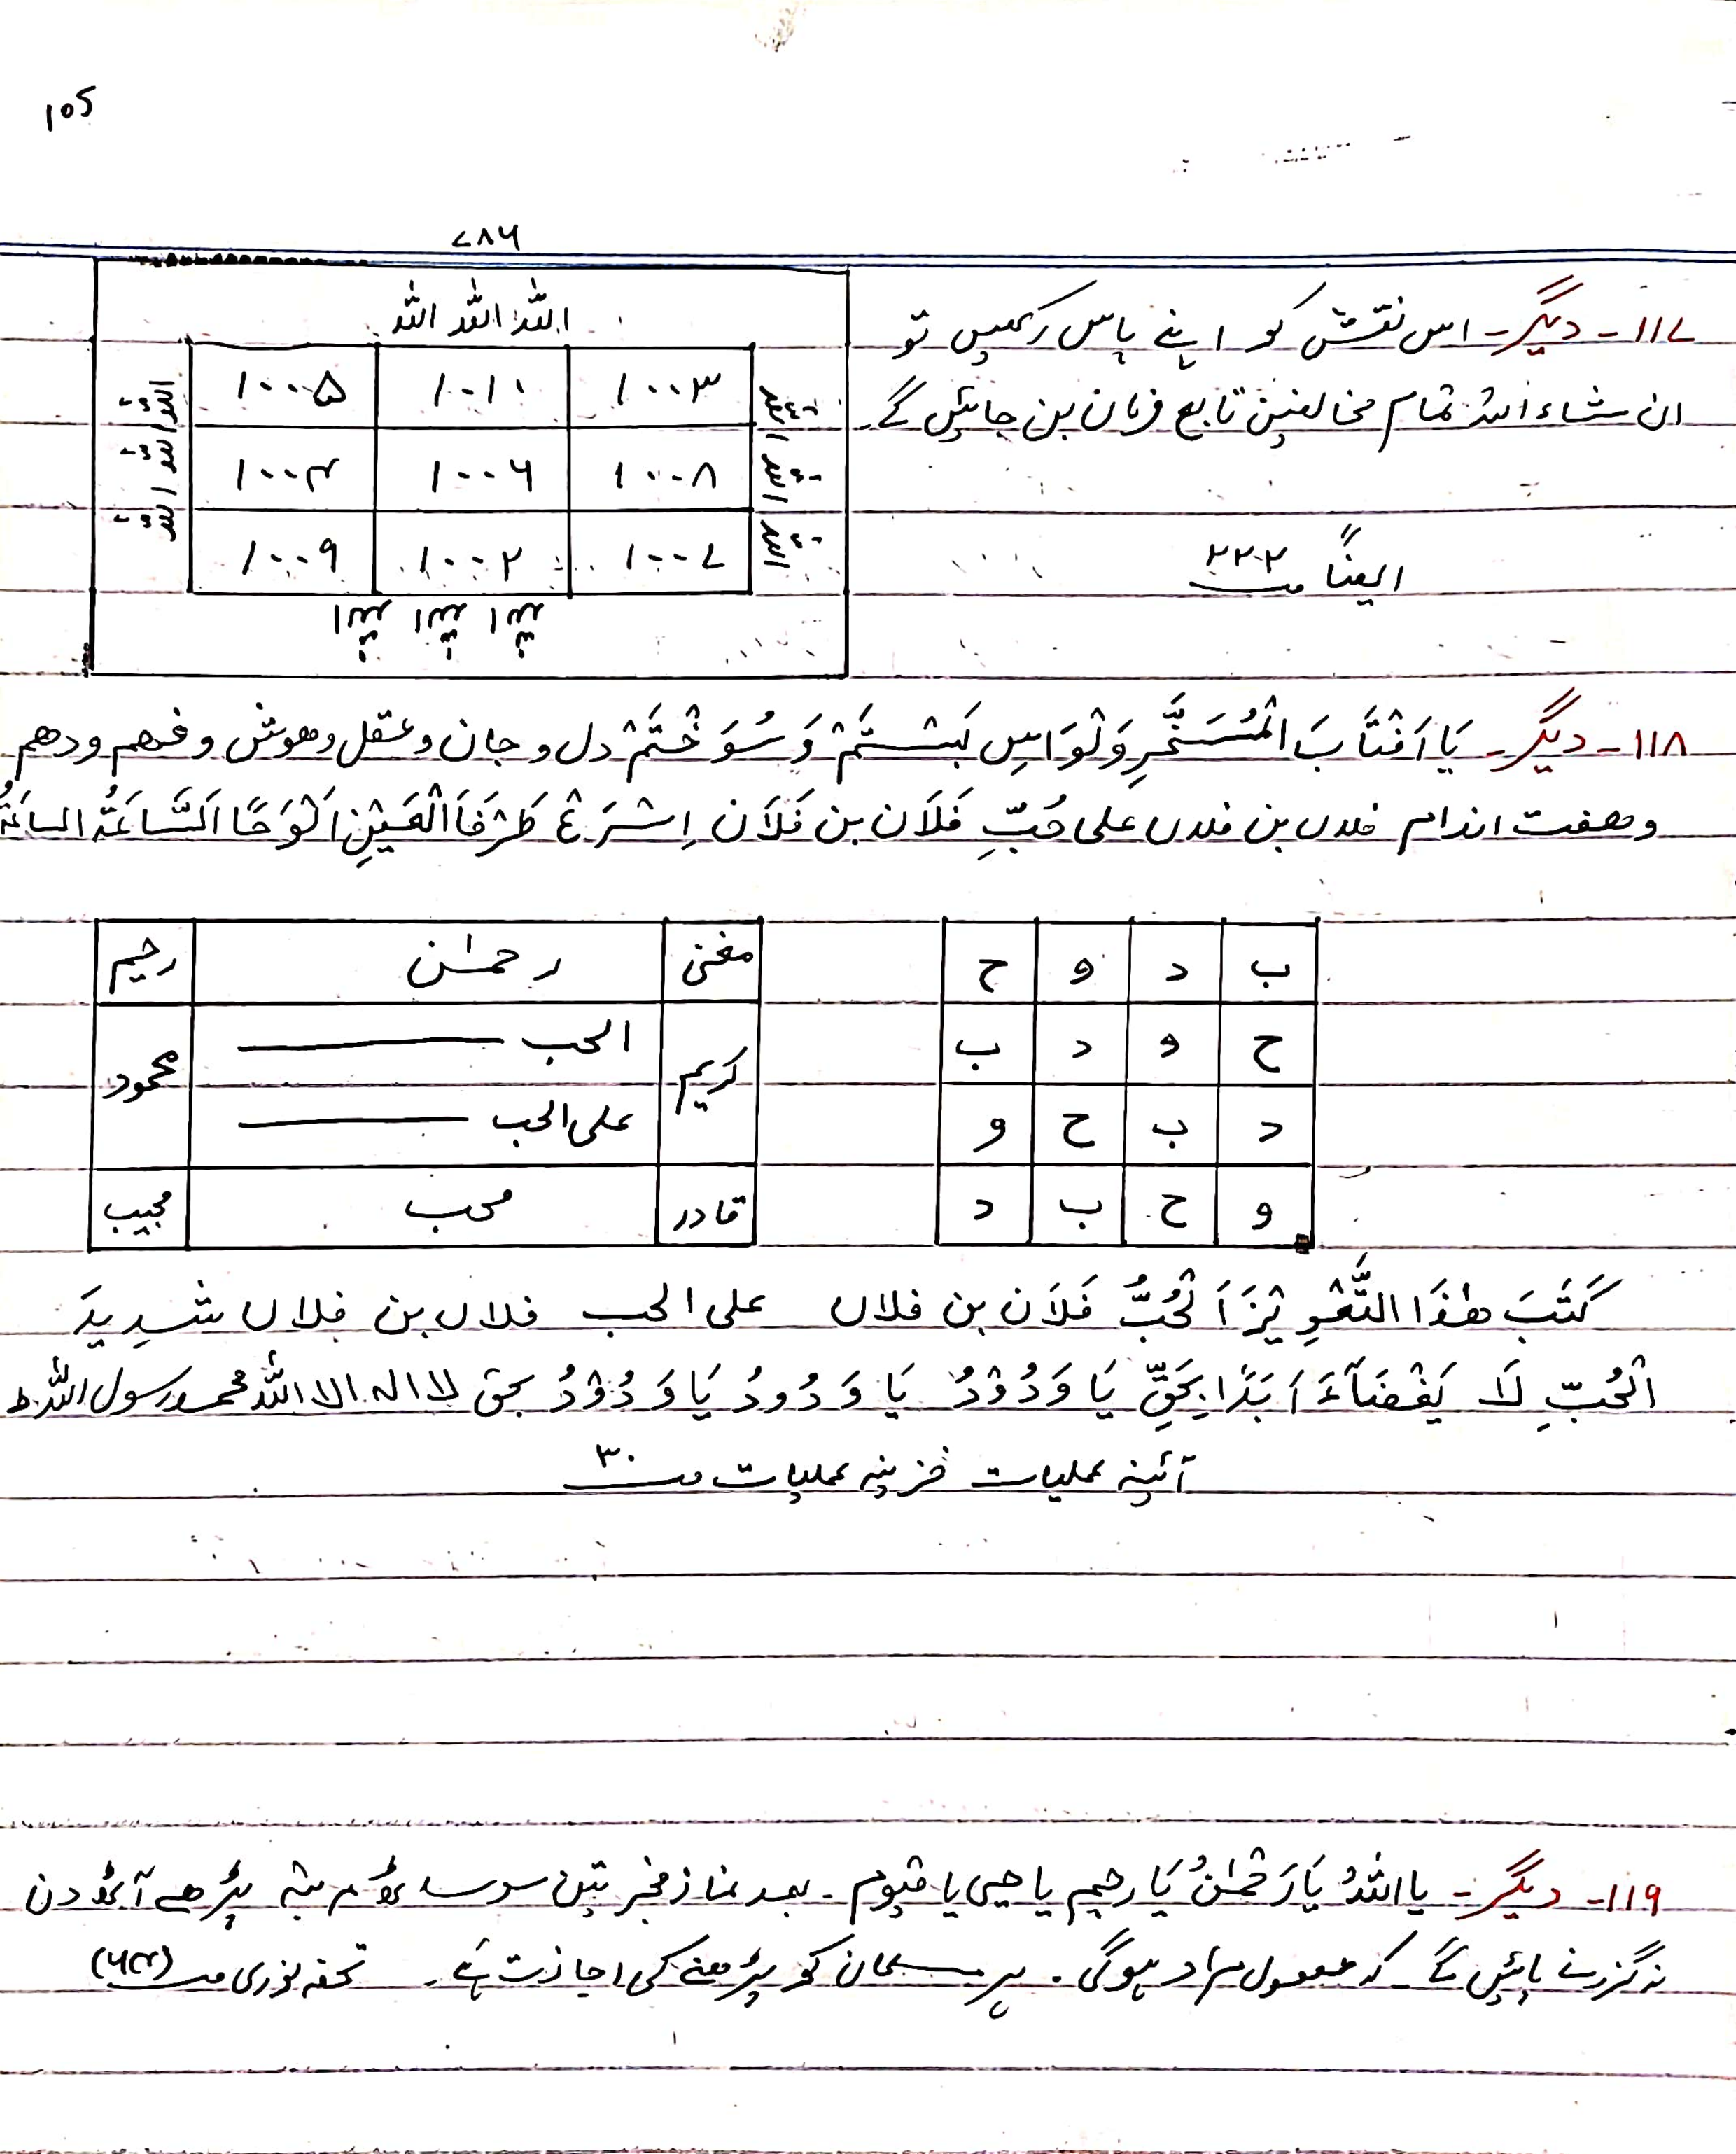 105
۷۸۶
۱۱۷- دیگر - اس نقش کو اپنے پاس رکھیں تو
ان شاء اللہ تمام مخالفین تابع فرمان بن جائیں گے۔
ایضاً
اللہ اللہ اللہ
اللہ اللہ اللہ
۱۰۰۳ ۱۰۱۰ ۱۰۰۵
۱۰۰۸ ۱۰۰۶ ۱۰۰۴
۱۰۰۷ ۱۰۰۲ ۱۰۰۹
اللہ اللہ اللہ
اللہ اللہ اللہ
۱۱۸- دیگر - یَا اَفْتَابَ الْمُسَخَّرِ وَلْوَاسِ بَسْتَمْ وَ سُوَخْتَمْ دل و جان و عقل و ھوش و فہم و دھم
و ھفت اندام فلاں بن فلاں علی حُبِّ فَلَان بن فَلَان اِسْرَعْ طَرْفَا الْعَیْنِ اَلْوَحًا اَلسَّاعَۃُ الساعَۃُ
ب د و ح
ح و د ب
د ب ح و
و ح ب د
مغنی رحمٰن رحیم
کریم الحب محمود
علی الحب
قادر محب مجیب
کَتَبَ ھٰذَا التَّعْوِیْزَ اَلْحُبُّ فَلَان بن فلاں علی الحب فلاں بن فلاں شَدِیدَ
الْحُبِّ لَا یَفْضَآءَ اَبَدًا بِحَقِّ یَا وَدُوْدُ یَا وَدُودُ یَا وَدُوْدُ بحق لا الہ الا اللہ محمد رسول اللہ ط
آئینہ عملیات خزینہ عملیات صـ ۳۰
۱۱۹- دیگر - یا اللہُ یَا رَحْمٰنُ یَا رحیم یا حیی یا قیوم - بعد نماز فجر تین سو مرتبہ پڑھے آٹھ دن
نہ گزرنے پائیں گے کہ حصول مراد ہوگی۔ ہر مسلمان کو پڑھنے کی اجازت ہے۔ تحفہ نوری صـ (۶۴)